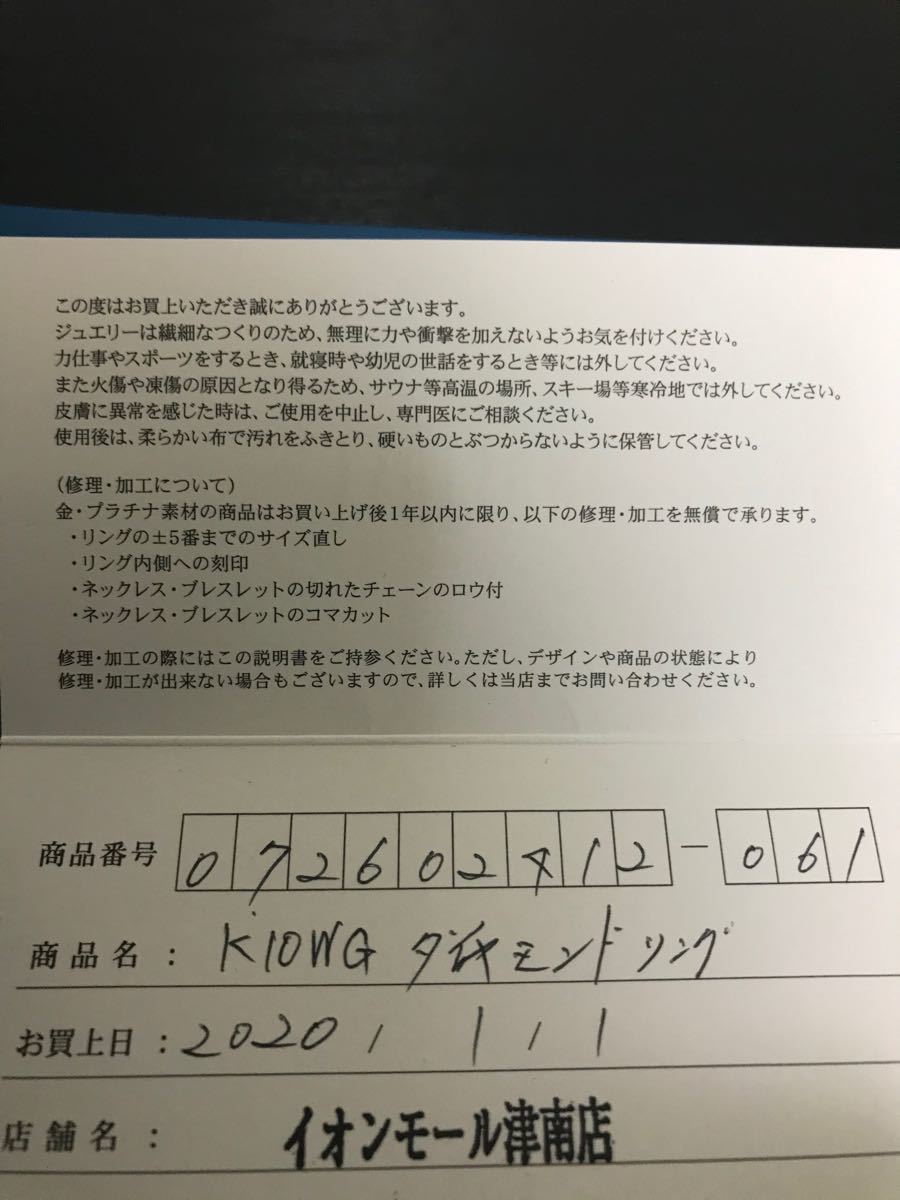 この度はお買上いただき誠にありがとうございます。
ジュエリーは繊細なつくりのため、無理に力や衝撃を加えないようお気を付けください。
力仕事やスポーツをするとき、就寝時や幼児の世話をするとき等には外してください。
また火傷や凍傷の原因となり得るため、サウナ等高温の場所、スキー場等寒冷地では外してください。
皮膚に異常を感じた時は、ご使用を中止し、専門医にご相談ください。
使用後は、柔らかい布で汚れをふきとり、硬いものとぶつからないように保管してください。
（修理・加工について）
金・プラチナ素材の商品はお買い上げ後1年以内に限り、以下の修理・加工を無償で承ります。
・リングの±5番までのサイズ直し
・リング内側への刻印
・ネックレス・ブレスレットの切れたチェーンのロウ付
・ネックレス・ブレスレットのコマカット
修理・加工の際にはこの説明書をご持参ください。ただし、デザインや商品の状態により
修理・加工が出来ない場合もございますので、詳しくは当店までお問い合わせください。
商品番号 072602412-061
商品名：K10WG ダイヤモンドリング
お買上日：2020, 1, 1
店舗名：イオンモール津南店